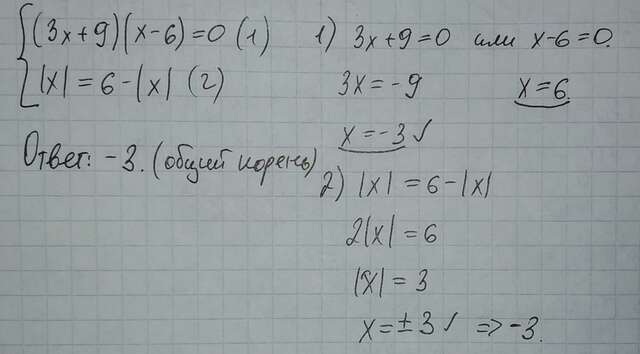 (3x+9)(x-6)=0 (1)
|x|=6-|x| (2)
Ответ: -3. (общий корень)
1) 3x+9=0 или x-6=0.
3x=-9 x=6.
x=-3 ✓
2) |x|=6-|x|
2|x|=6
|x|=3
x=±3 ✓ => -3.